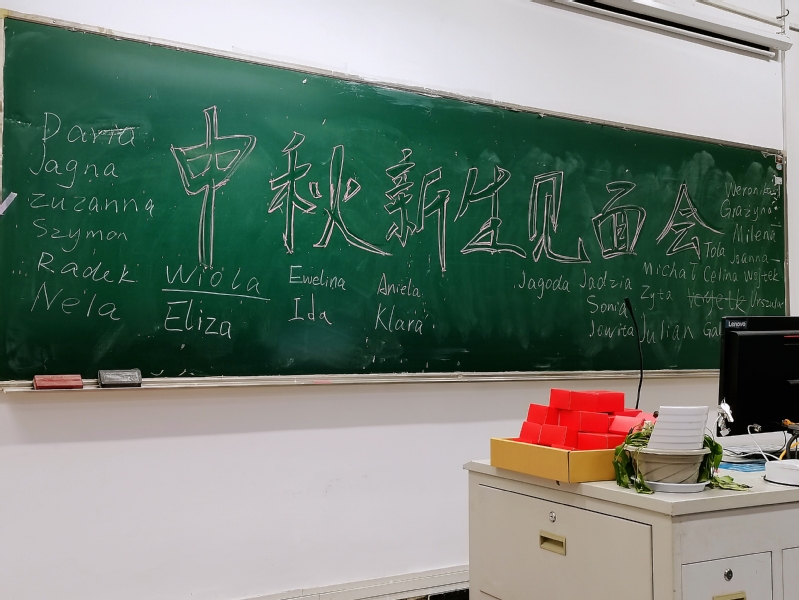 中秋新生见面会
Daria
Jagna
zuzanna
Szymon
Radek
Nela
Wiola
Eliza
Ewelina
Ida
Aniela
Klara
Jagoda Jadzia
Sonia
Jowita
Michał Celina Wojtek
Zyta Wojtek Urszula
Julian
Weronika
Grażyna
Milena
Tola Joanna
Lenovo